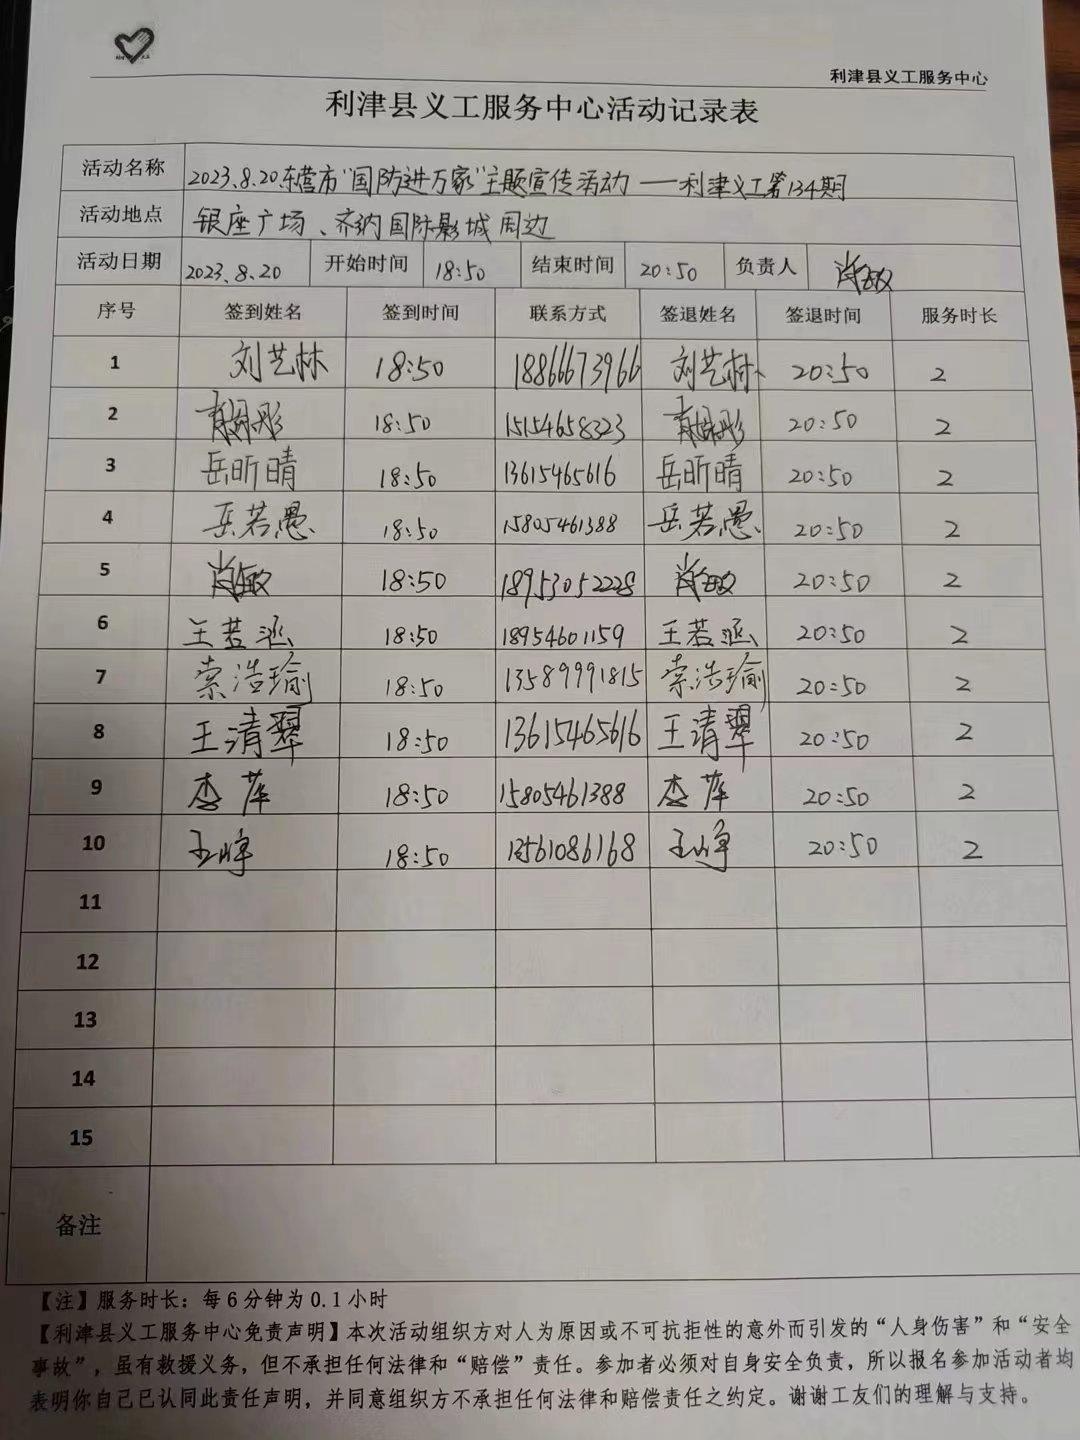 利津县义工服务中心
利津县义工服务中心活动记录表
活动名称 2023.8.20东营市"国防进万家"主题宣传活动——利津义工第134期
活动地点 银座广场、齐纳国际影城周边
活动日期 2023.8.20 开始时间 18:50 结束时间 20:50 负责人 肖敏
序号 签到姓名 签到时间 联系方式 签退姓名 签退时间 服务时长
1 刘艺林 18:50 18866673966 刘艺林 20:50 2
2 18:50 15154658323 20:50 2
3 岳昕晴 18:50 13615465616 岳昕晴 20:50 2
4 岳若愚 18:50 15805461388 岳若愚 20:50 2
5 肖敏 18:50 18953052228 肖敏 20:50 2
6 王若涵 18:50 18954601159 王若涵 20:50 2
7 索浩瑜 18:50 13589991815 索浩瑜 20:50 2
8 王清翠 18:50 13615465616 王清翠 20:50 2
9 李萍 18:50 15805461388 李萍 20:50 2
10 王峥 18:50 13561086168 王峥 20:50 2
11
12
13
14
15
备注
【注】服务时长：每6分钟为0.1小时
【利津县义工服务中心免责声明】本次活动组织方对人为原因或不可抗拒性的意外而引发的“人身伤害”和“安全
事故”，虽有救援义务，但不承担任何法律和“赔偿”责任。参加者必须对自身安全负责，所以报名参加活动者均
表明你自己已认同此责任声明，并同意组织方不承担任何法律和赔偿责任之约定。谢谢工友们的理解与支持。